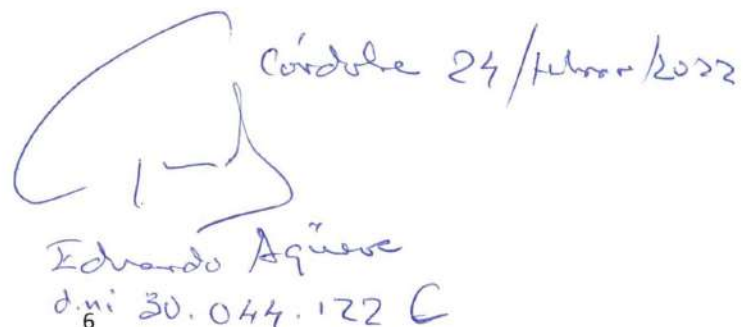 Córdoba 24/febrero/2022
Eduardo Agüera
d.ni 30.044.122 C
6